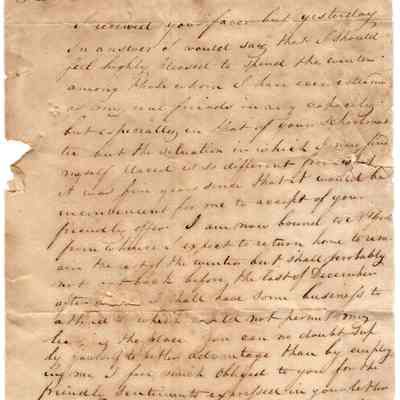 I received your favor but yesterday
In answer I would say that I should
feel highly pleased to spend the winter
among those whom I have ever esteemed
as my real friends in any capacity
but especially in that of your school
but the situation in which I now find
myself placed is so different from what
it was five years since that it would be
inconvenient for me to accept of your
friendly offer I am now bound to
from whence I expect to return home to
the rest of the winter but shall probably
not get back before the last of December
after I shall have some business to
attend to which will not permit my
leaving the place you can no doubt sup
ply yourself to better advantage than by employ
ing me I feel much obliged to you for the
friendly sentiments expressed in your letter